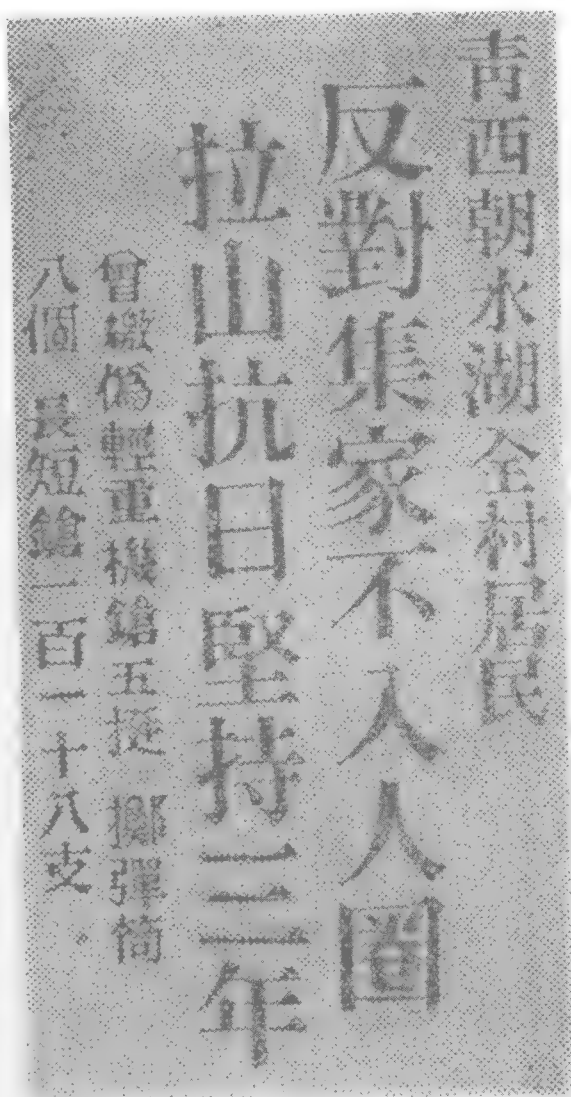 青西朝水湖全村居民
反對集家不入人圈
拉山抗日堅持三年
曾繳偽輕重機鎗五挺 擲彈筒
八個 長短鎗一百一十八支。